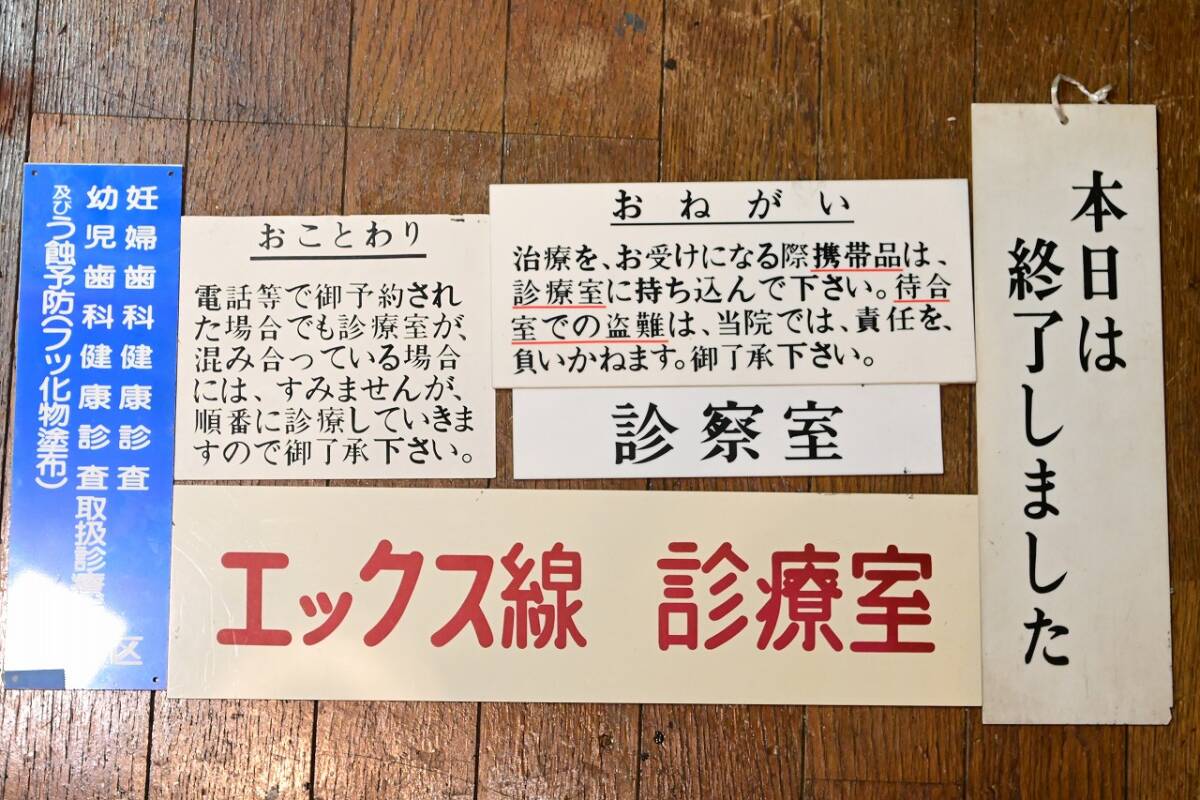 妊婦歯科健康診査
幼児歯科健康診査取扱診療
及びう蝕予防(フッ化物塗布)
区
おことわり
電話等で御予約され
た場合でも診療室が、
混み合っている場合
には、すみませんが、
順番に診療していきま
すので御了承下さい。
おねがい
治療を、お受けになる際携帯品は、
診療室に持ち込んで下さい。待合
室での盗難は、当院では、責任を、
負いかねます。御了承下さい。
診察室
エックス線 診療室
本日は
終了しました